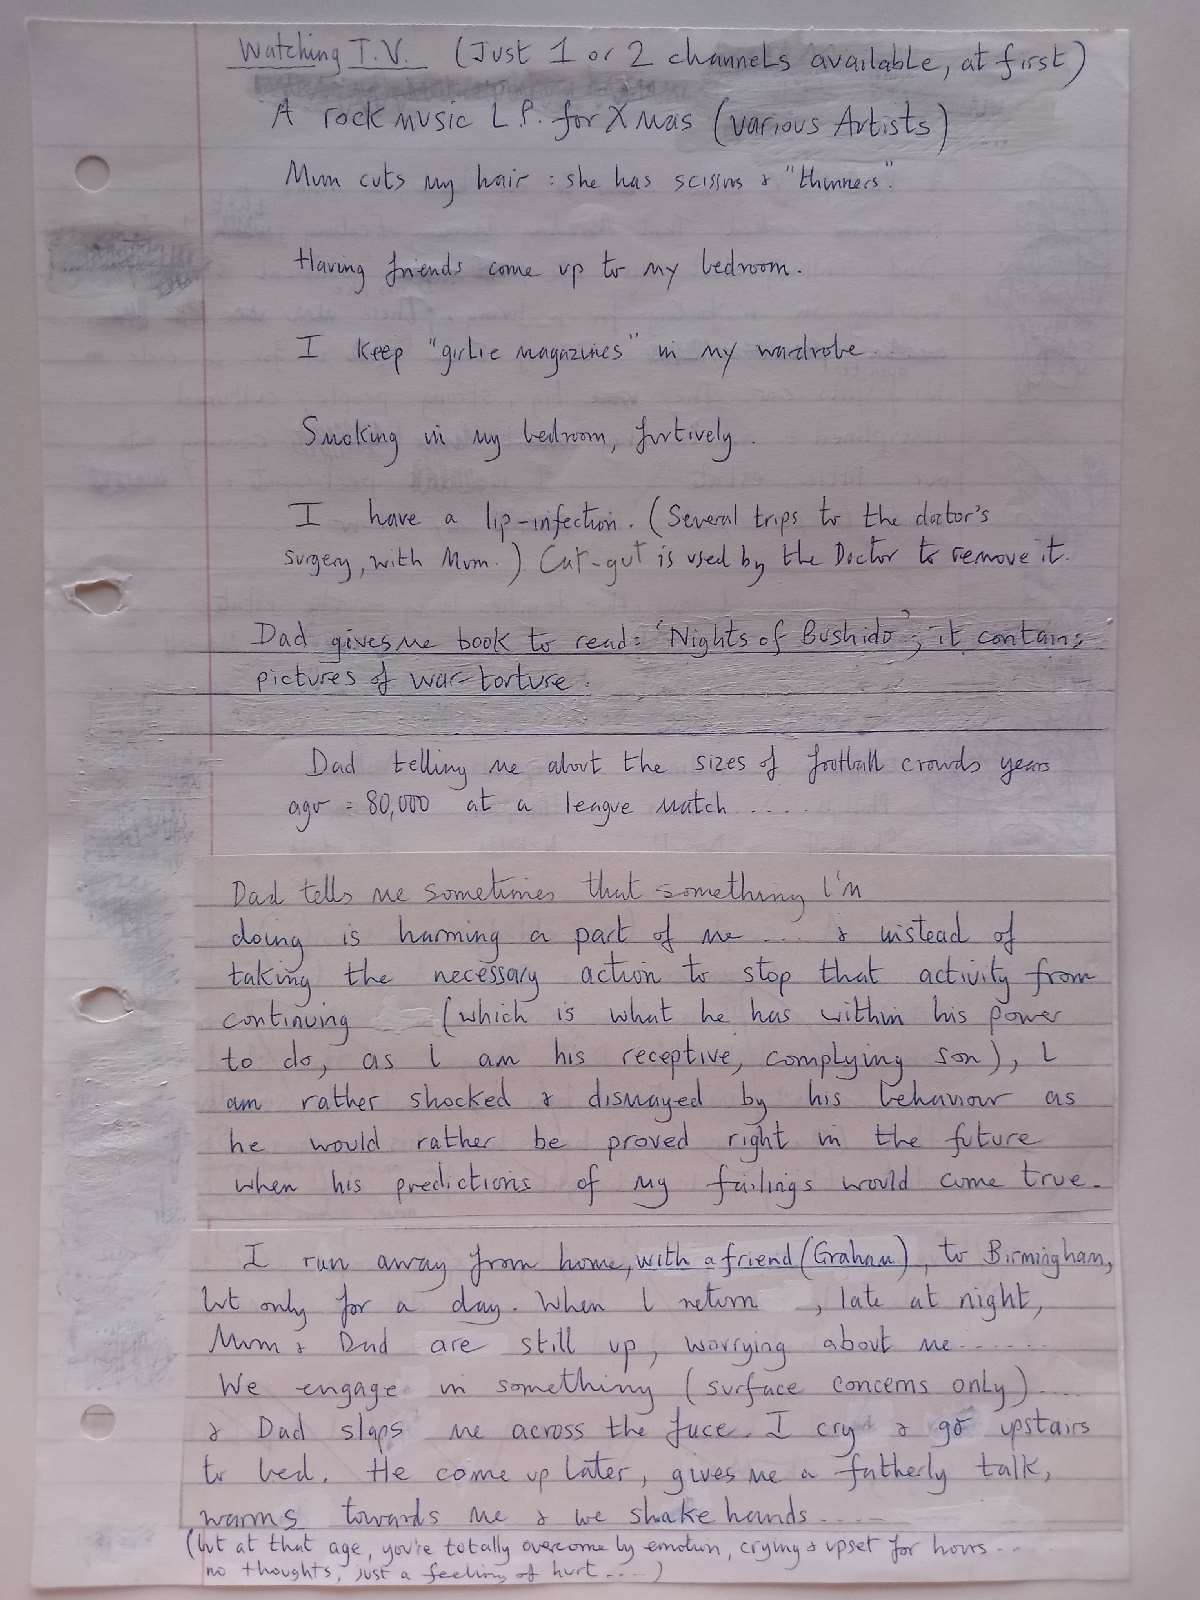 Watching T.V. (Just 1 or 2 channels available, at first)
A rock music L.P. for Xmas (various Artists)
Mum cuts my hair : she has scissors & "thinners".
Having friends come up to my bedroom.
I keep "girlie magazines" in my wardrobe.
Smoking in my bedroom, furtively.
I have a lip-infection. (Several trips to the doctor's
surgery, with Mum.) Cat-gut is used by the Doctor to remove it.
Dad gives me book to read: 'Nights of Bushido'; it contains
pictures of war-torture.
Dad telling me about the sizes of football crowds years
ago = 80,000 at a league match .....
Dad tells me sometimes that something I'm
doing is harming a part of me .... & instead of
taking the necessary action to stop that activity from
continuing (which is what he has within his power
to do, as I am his receptive, complying son), I
am rather shocked & dismayed by his behaviour as
he would rather be proved right in the future
when his predictions of my failings would come true.
I run away from home, with a friend (Graham), to Birmingham,
but only for a day. When I return , late at night,
Mum & Dad are still up, worrying about me ......
We engage in something (surface concerns only) ....
& Dad slaps me across the face. I cry & go upstairs
to bed. He come up later, gives me a fatherly talk,
warms towards me & we shake hands .....
(but at that age, you're totally overcome by emotion, crying & upset for hours ....
no thoughts, just a feeling of hurt ....)